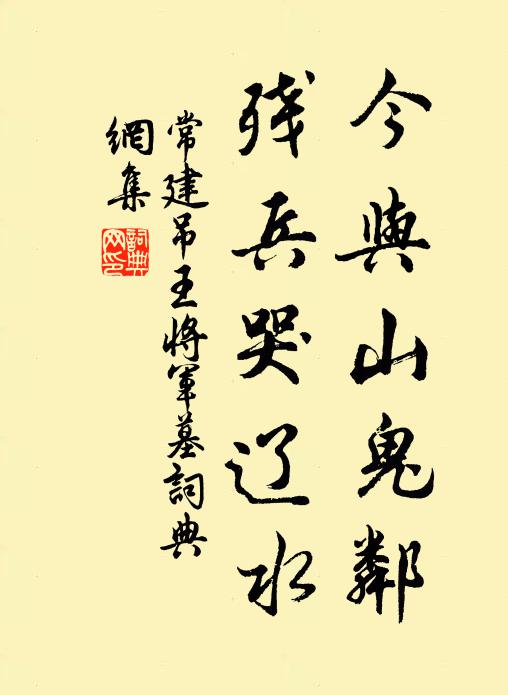 今與山鬼鄰
残兵哭辽水
常建吊王将軍墓詞典
網集
詞典
网印